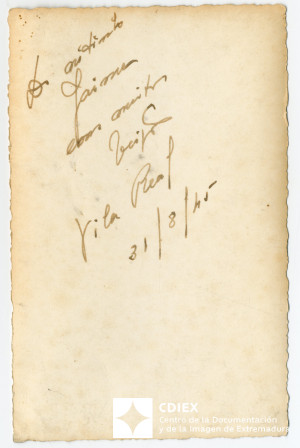 Ao
Jaime
com muitos
Vila Real
31/8/45
CDIEX
Centro de la Documentación
y de la Imagen de Extremadura